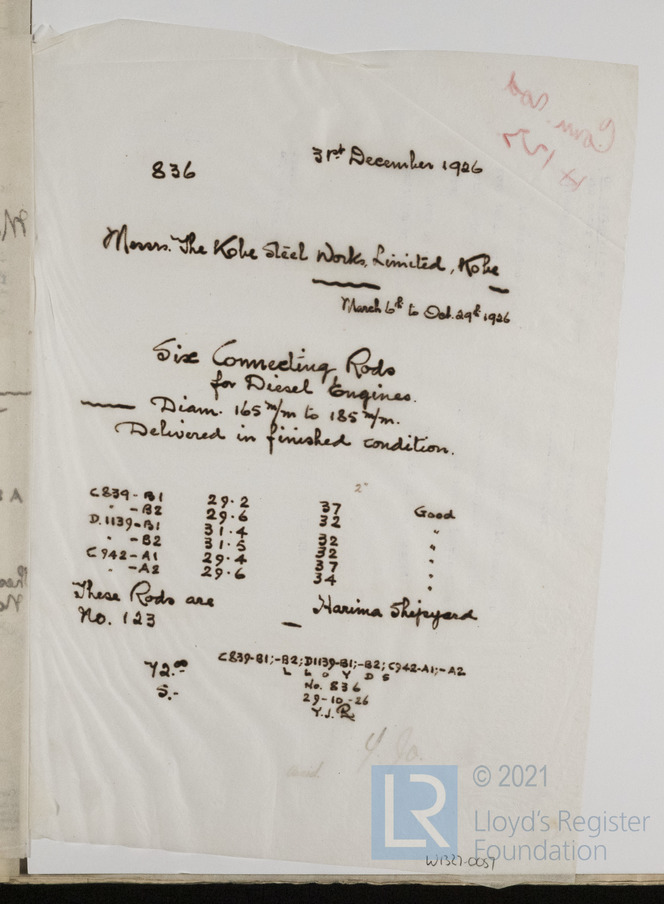 836
31st December 1926
Messrs. The Kobe Steel Works, Limited, Kobe
March 6th to Oct. 29th 1926
Six Connecting Rods
for Diesel Engines.
Diam. 165 m/m to 185 m/m.
Delivered in finished condition.
2"
C839-B1 29.2 37 Good
" -B2 29.6 32 "
D.1139-B1 31.4 32 "
" -B2 31.5 32 "
C942-A1 29.4 37 "
" -A2 29.6 34 "
These Rods are
No. 123 — Harima Shipyard
72.00
5.-
C839-B1;-B2;D1139-B1;-B2;C942-A1;-A2
LLOYDS
No. 836
29-10-26
Y.J.R
LR
© 2021
Lloyd's Register
Foundation
W1327-0057